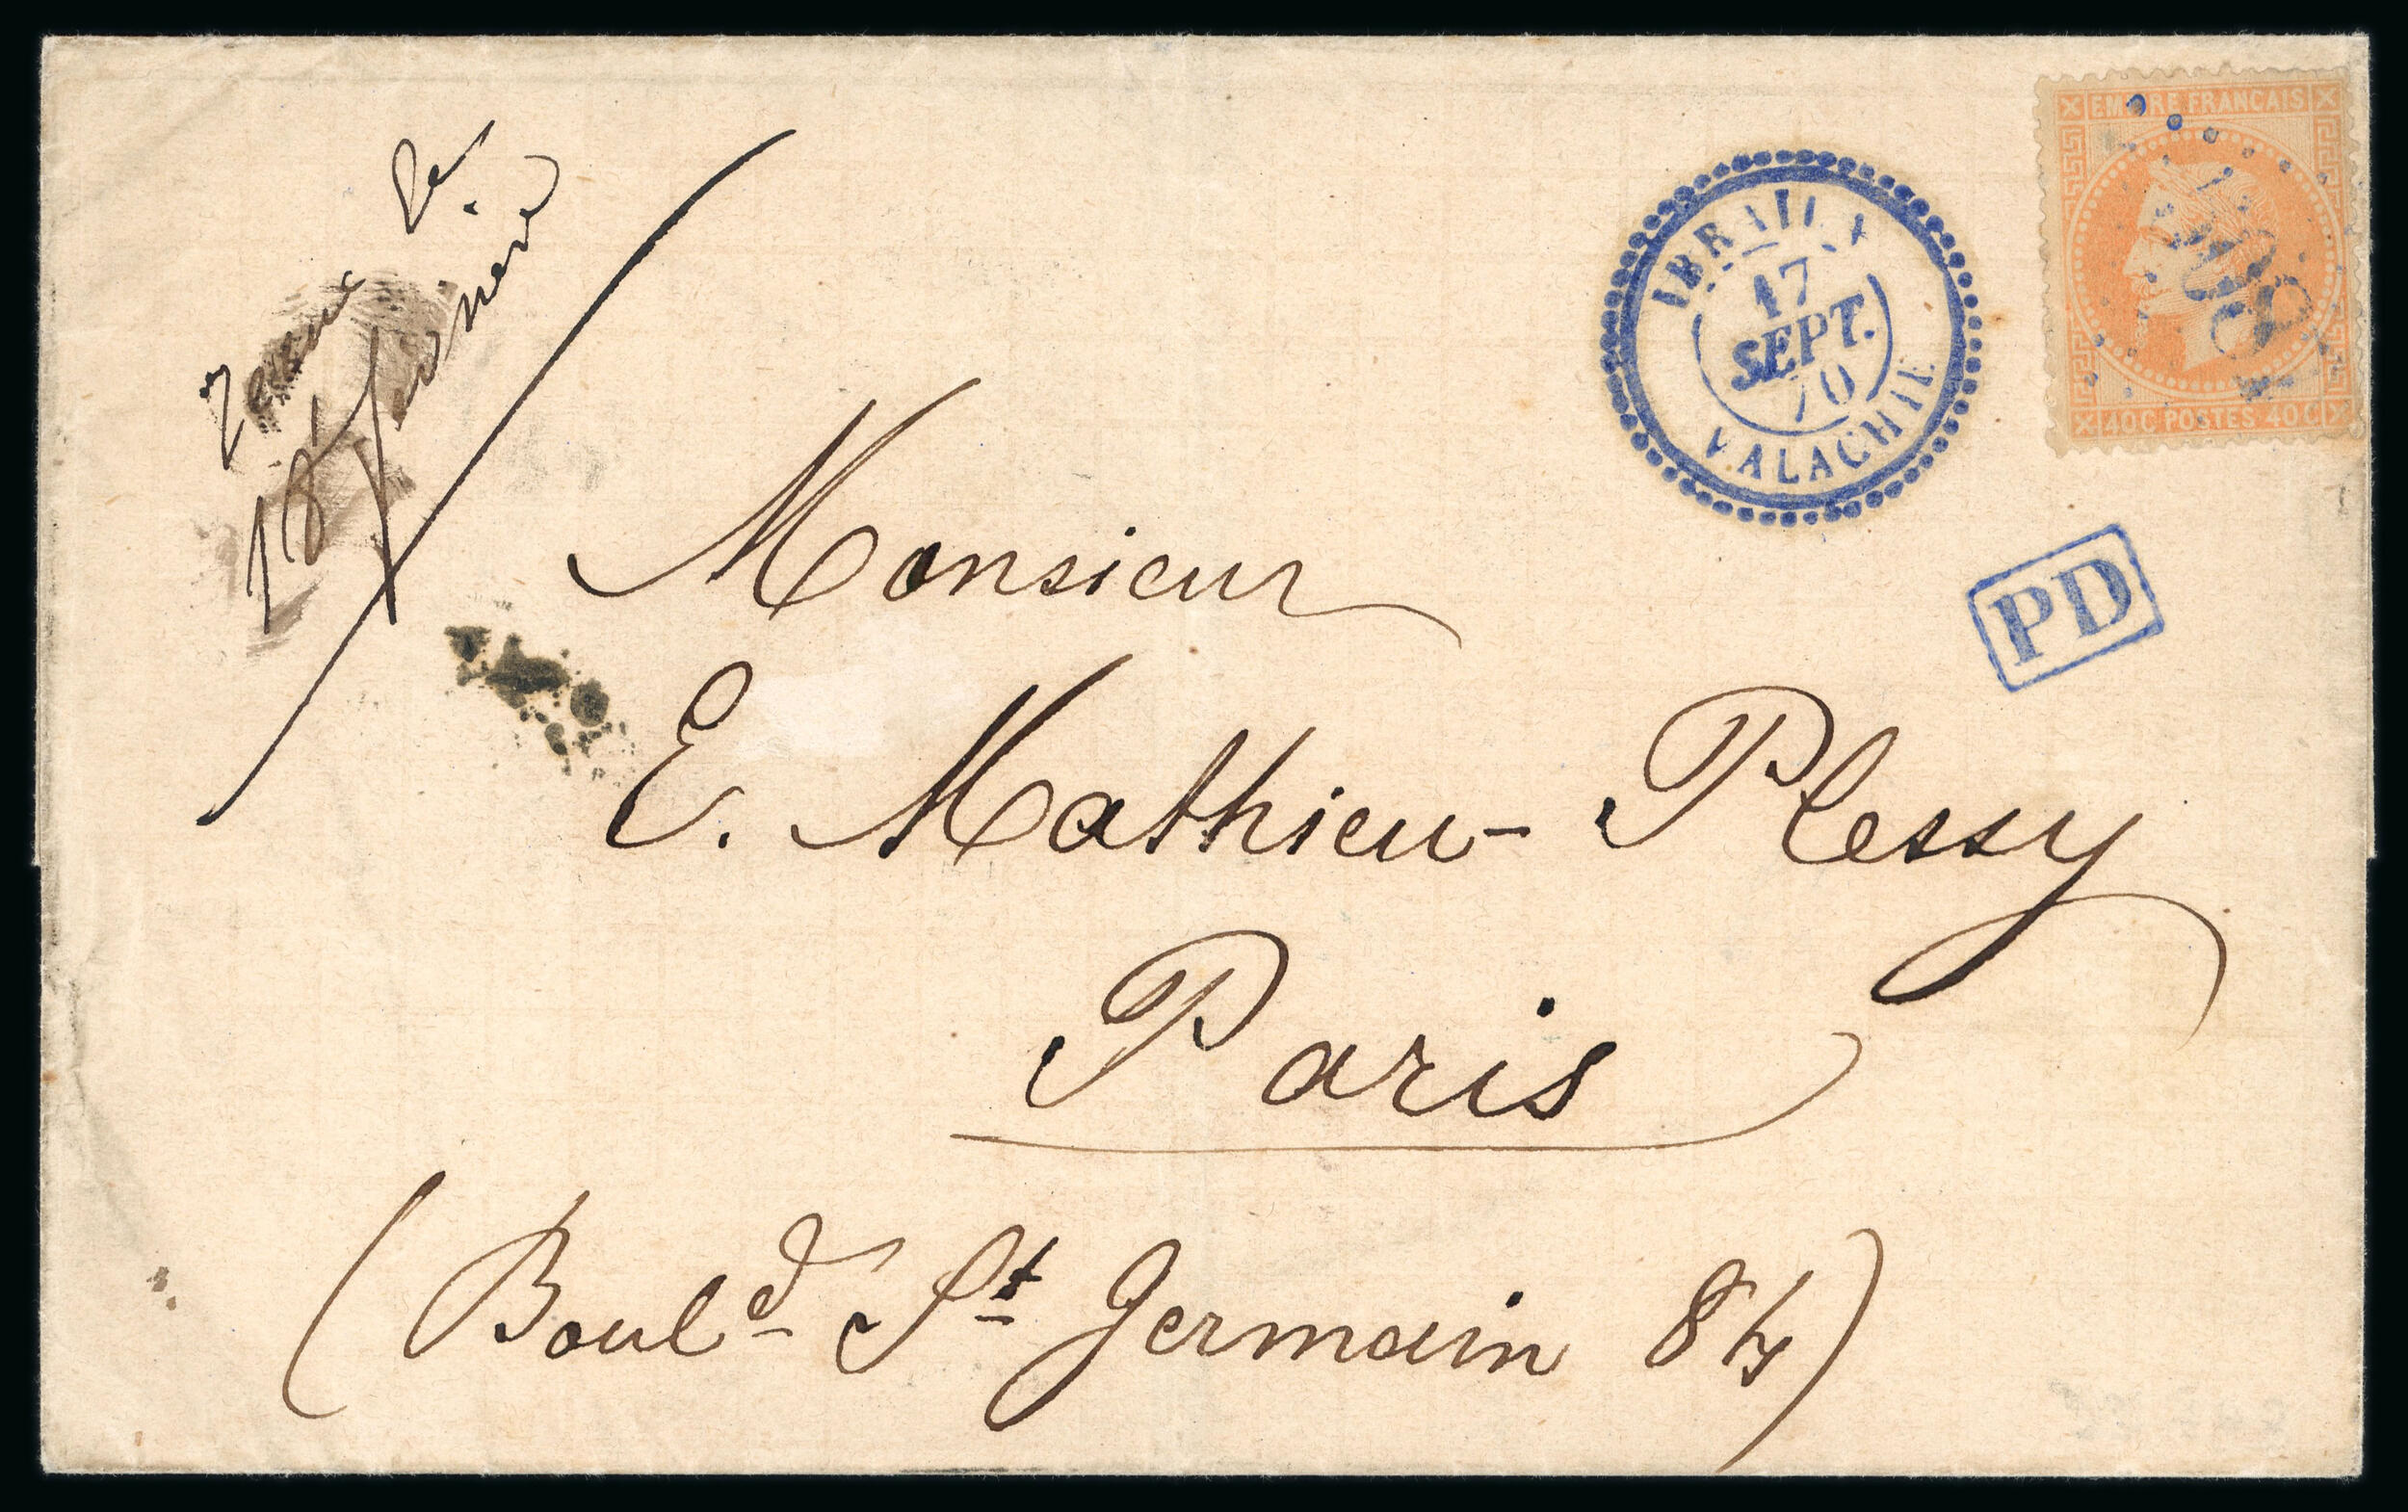 EMPIRE FRANCAIS
40C POSTES 40C
5081
IBRAILA
17
SEPT.
70
VALACHIE
PD
Monsieur
E. Mathieu-Plessy
Paris
(Boulᵈ Sᵗ Germain 84)